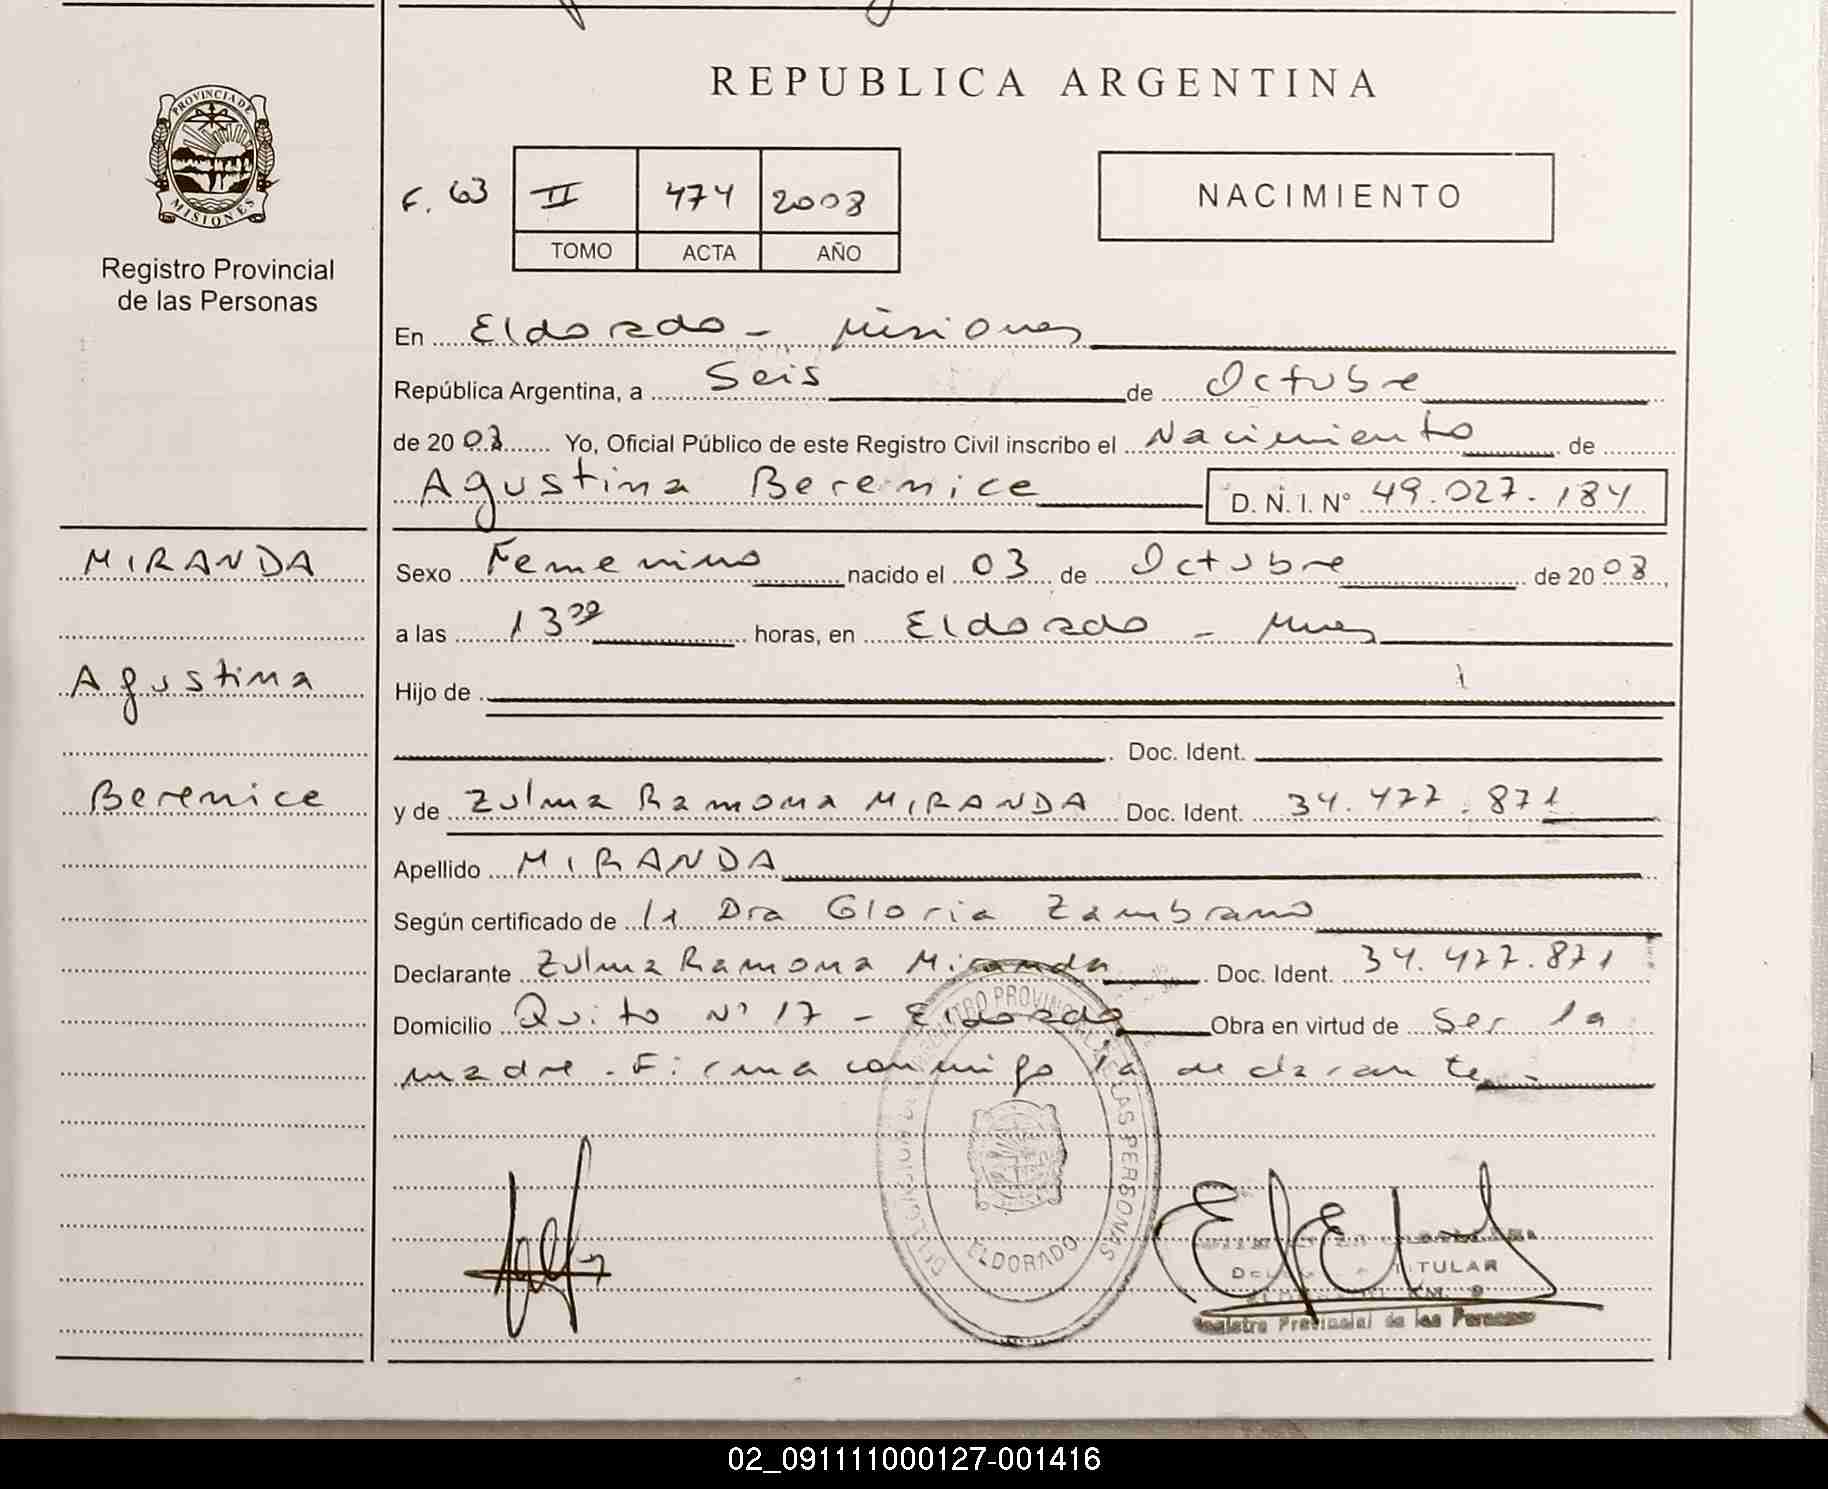 REPUBLICA ARGENTINA
PROVINCIA DE
MISIONES
Registro Provincial
de las Personas
F. 63 II 474 2008
TOMO ACTA AÑO
NACIMIENTO
En Eldorado - Misiones
República Argentina, a Seis de Octubre
de 2008 Yo, Oficial Público de este Registro Civil inscribo el Nacimiento de
Agustina Berenice D. N. I. N° 49.027.184
MIRANDA
Agustina
Berenice
Sexo Femenino nacido el 03 de Octubre de 2008,
a las 13 horas, en Eldorado - Mnes
Hijo de
Doc. Ident.
y de Zulma Ramona MIRANDA Doc. Ident. 34.477.871
Apellido MIRANDA
Según certificado de la Dra Gloria Zambrano
Declarante Zulma Ramona Miranda Doc. Ident. 34.477.871
Domicilio Quito N° 17 - Eldorado Obra en virtud de ser la
madre. Firma conmigo la declarante -
REGISTRO PROVINCIAL DE LAS PERSONAS
ELDORADO
TITULAR
Registro Provincial de las Personas
02_091111000127-001416